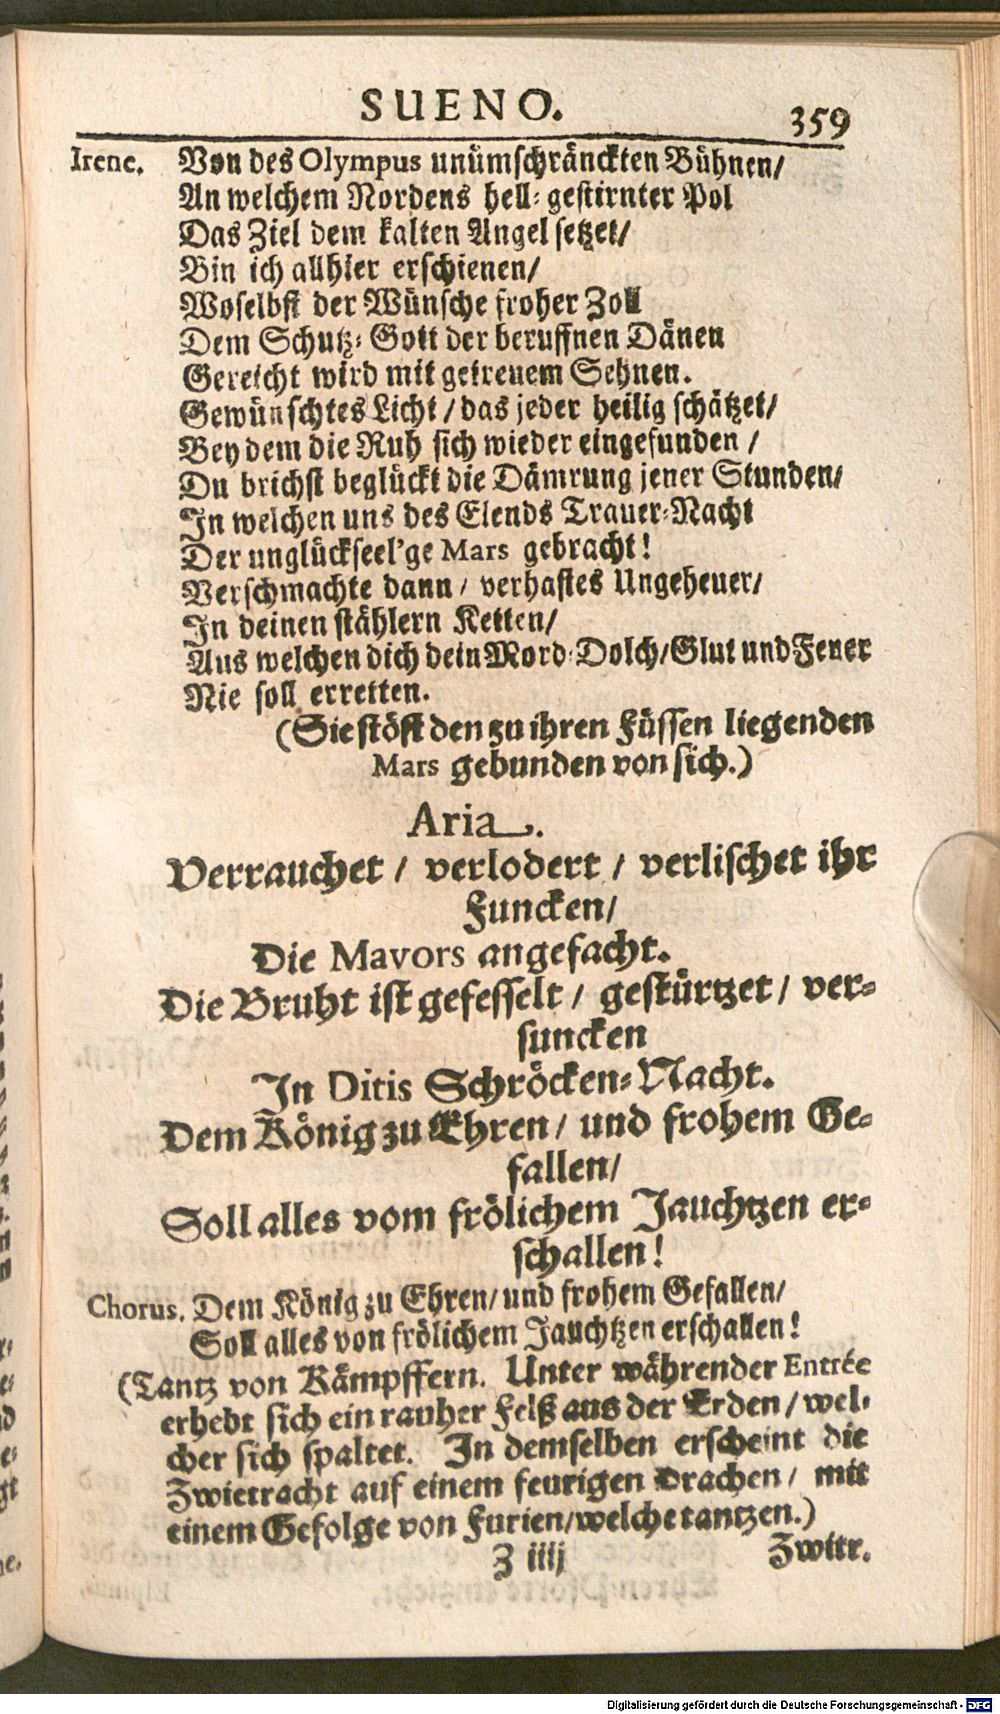 SUENO.
359
Irene. Von des Olympus unümschränckten Bühnen/
An welchem Nordens hell-gestirnter Pol
Das Ziel dem kalten Angel setzet/
Bin ich allhier erschienen/
Woselbst der Wünsche froher Zoll
Dem Schutz-Gott der beruffnen Dänen
Gereicht wird mit getreuem Sehnen.
Gewünschtes Licht/das jeder heilig schätzet/
Bey dem die Ruh sich wieder eingefunden /
Du brichst beglückt die Dämrung jener Stunden/
In welchen uns des Elends Trauer-Nacht
Der unglückseel'ge Mars gebracht!
Verschmachte dann/ verhastes Ungeheuer/
In deinen stählern Ketten/
Aus welchen dich dein Mord-Dolch/Glut und Feuer
Nie soll erretten.
(Sie stöst den zu ihren Füssen liegenden
Mars gebunden von sich.)
Aria.
Verrauchet / verlodert / verlischet ihr
Funcken/
Die Mavors angefacht.
Die Bruht ist gefesselt / gestürtzet / ver-
suncken
In Ditis Schröcken-Nacht.
Dem König zu Ehren/ und frohem Ge-
fallen/
Soll alles vom frölichem Jauchtzen er-
schallen!
Chorus. Dem König zu Ehren/und frohem Gefallen/
Soll alles von frölichem Jauchtzen erschallen!
(Tantz von Kämpffern. Unter währender Entrée
erhebt sich ein rauher Felß aus der Erden/wel-
cher sich spaltet. In demselben erscheint die
Zwietracht auf einem feurigen Drachen/ mit
einem Gefolge von Furien/welche tantzen.)
Z iiij
Zwitr.
Digitalisierung gefördert durch die Deutsche Forschungsgemeinschaft - DFG